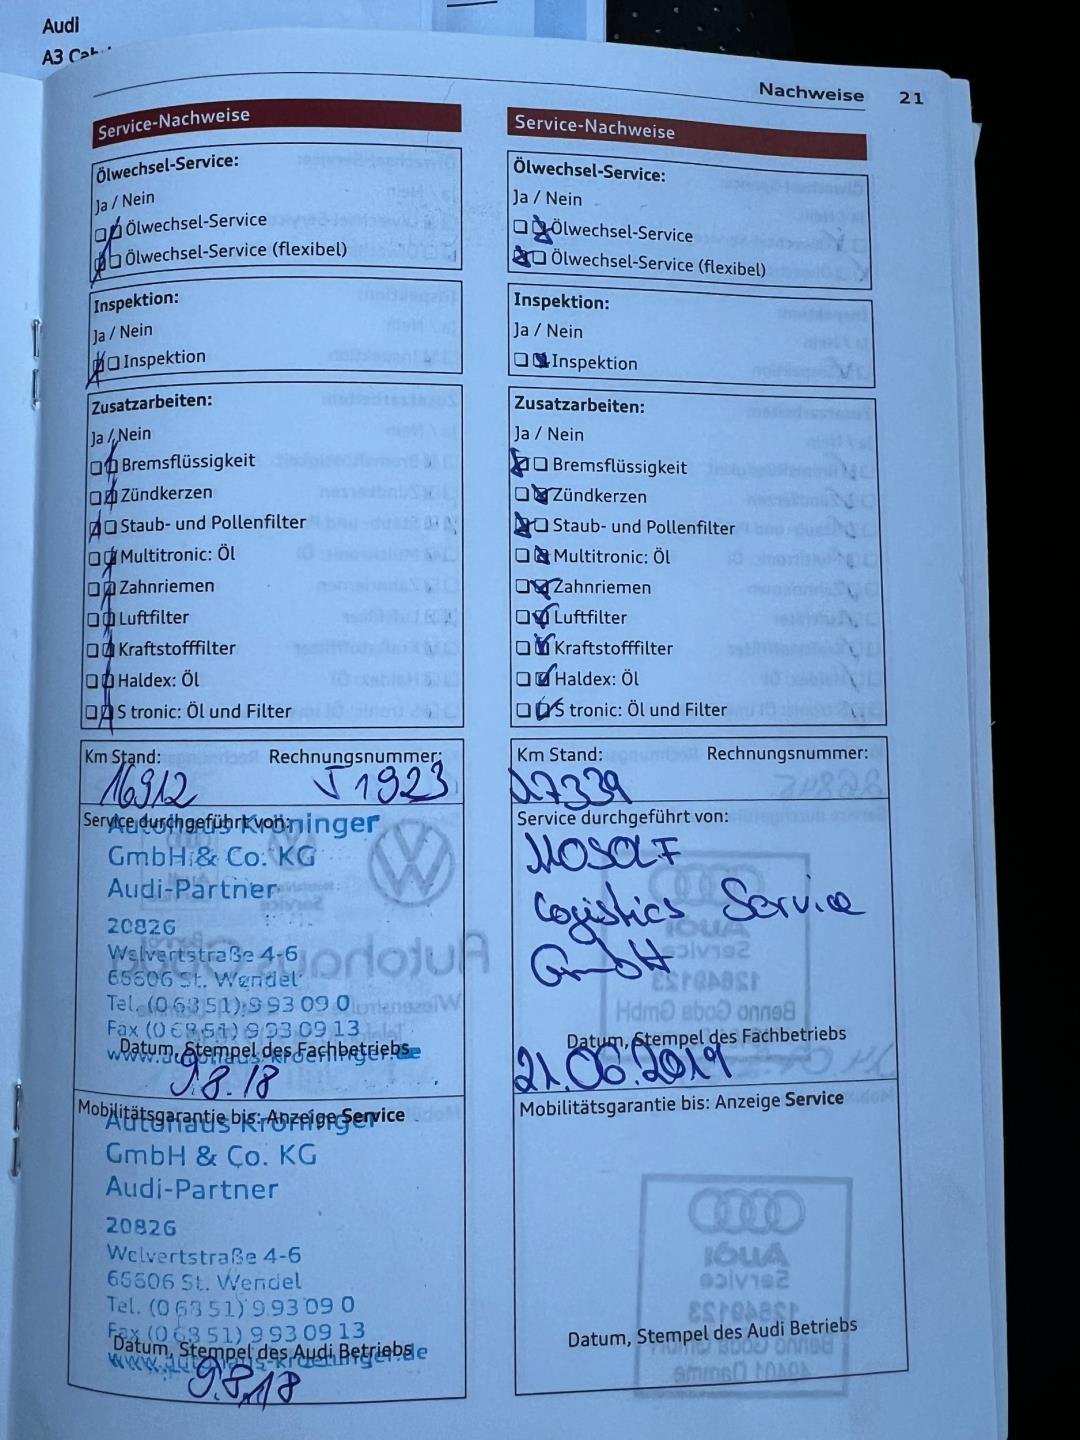 Audi
A3
Nachweise 21
Service-Nachweise
Ölwechsel-Service:
Ja / Nein
Ölwechsel-Service
Ölwechsel-Service (flexibel)
Inspektion:
Ja / Nein
Inspektion
Zusatzarbeiten:
Ja / Nein
Bremsflüssigkeit
Zündkerzen
Staub- und Pollenfilter
Multitronic: Öl
Zahnriemen
Luftfilter
Kraftstofffilter
Haldex: Öl
S tronic: Öl und Filter
Km Stand: Rechnungsnummer:
16912 J 1923
Service durchgeführt von:
Autohaus Kröninger
GmbH & Co. KG
Audi-Partner
2082G
Welvertstraße 4-6
66606 St. Wendel
Tel. (0 68 51) 9 93 09 0
Fax (0 68 51) 9 93 09 13
www.autohaus-kroeninger.de
Datum, Stempel des Fachbetriebs
9.8.18
Mobilitätsgarantie bis: Anzeige Service
Autohaus Kröninger
GmbH & Co. KG
Audi-Partner
2082G
Welvertstraße 4-6
66606 St. Wendel
Tel. (0 68 51) 9 93 09 0
Fax (0 68 51) 9 93 09 13
www.autohaus-kroeninger.de
Datum, Stempel des Audi Betriebs
9.8.18
Service-Nachweise
Ölwechsel-Service:
Ja / Nein
Ölwechsel-Service
Ölwechsel-Service (flexibel)
Inspektion:
Ja / Nein
Inspektion
Zusatzarbeiten:
Ja / Nein
Bremsflüssigkeit
Zündkerzen
Staub- und Pollenfilter
Multitronic: Öl
Zahnriemen
Luftfilter
Kraftstofffilter
Haldex: Öl
S tronic: Öl und Filter
Km Stand: Rechnungsnummer:
27339
Service durchgeführt von:
MOSOLF
Logistics Service
GmbH
Datum, Stempel des Fachbetriebs
21.06.2019
Mobilitätsgarantie bis: Anzeige Service
Datum, Stempel des Audi Betriebs